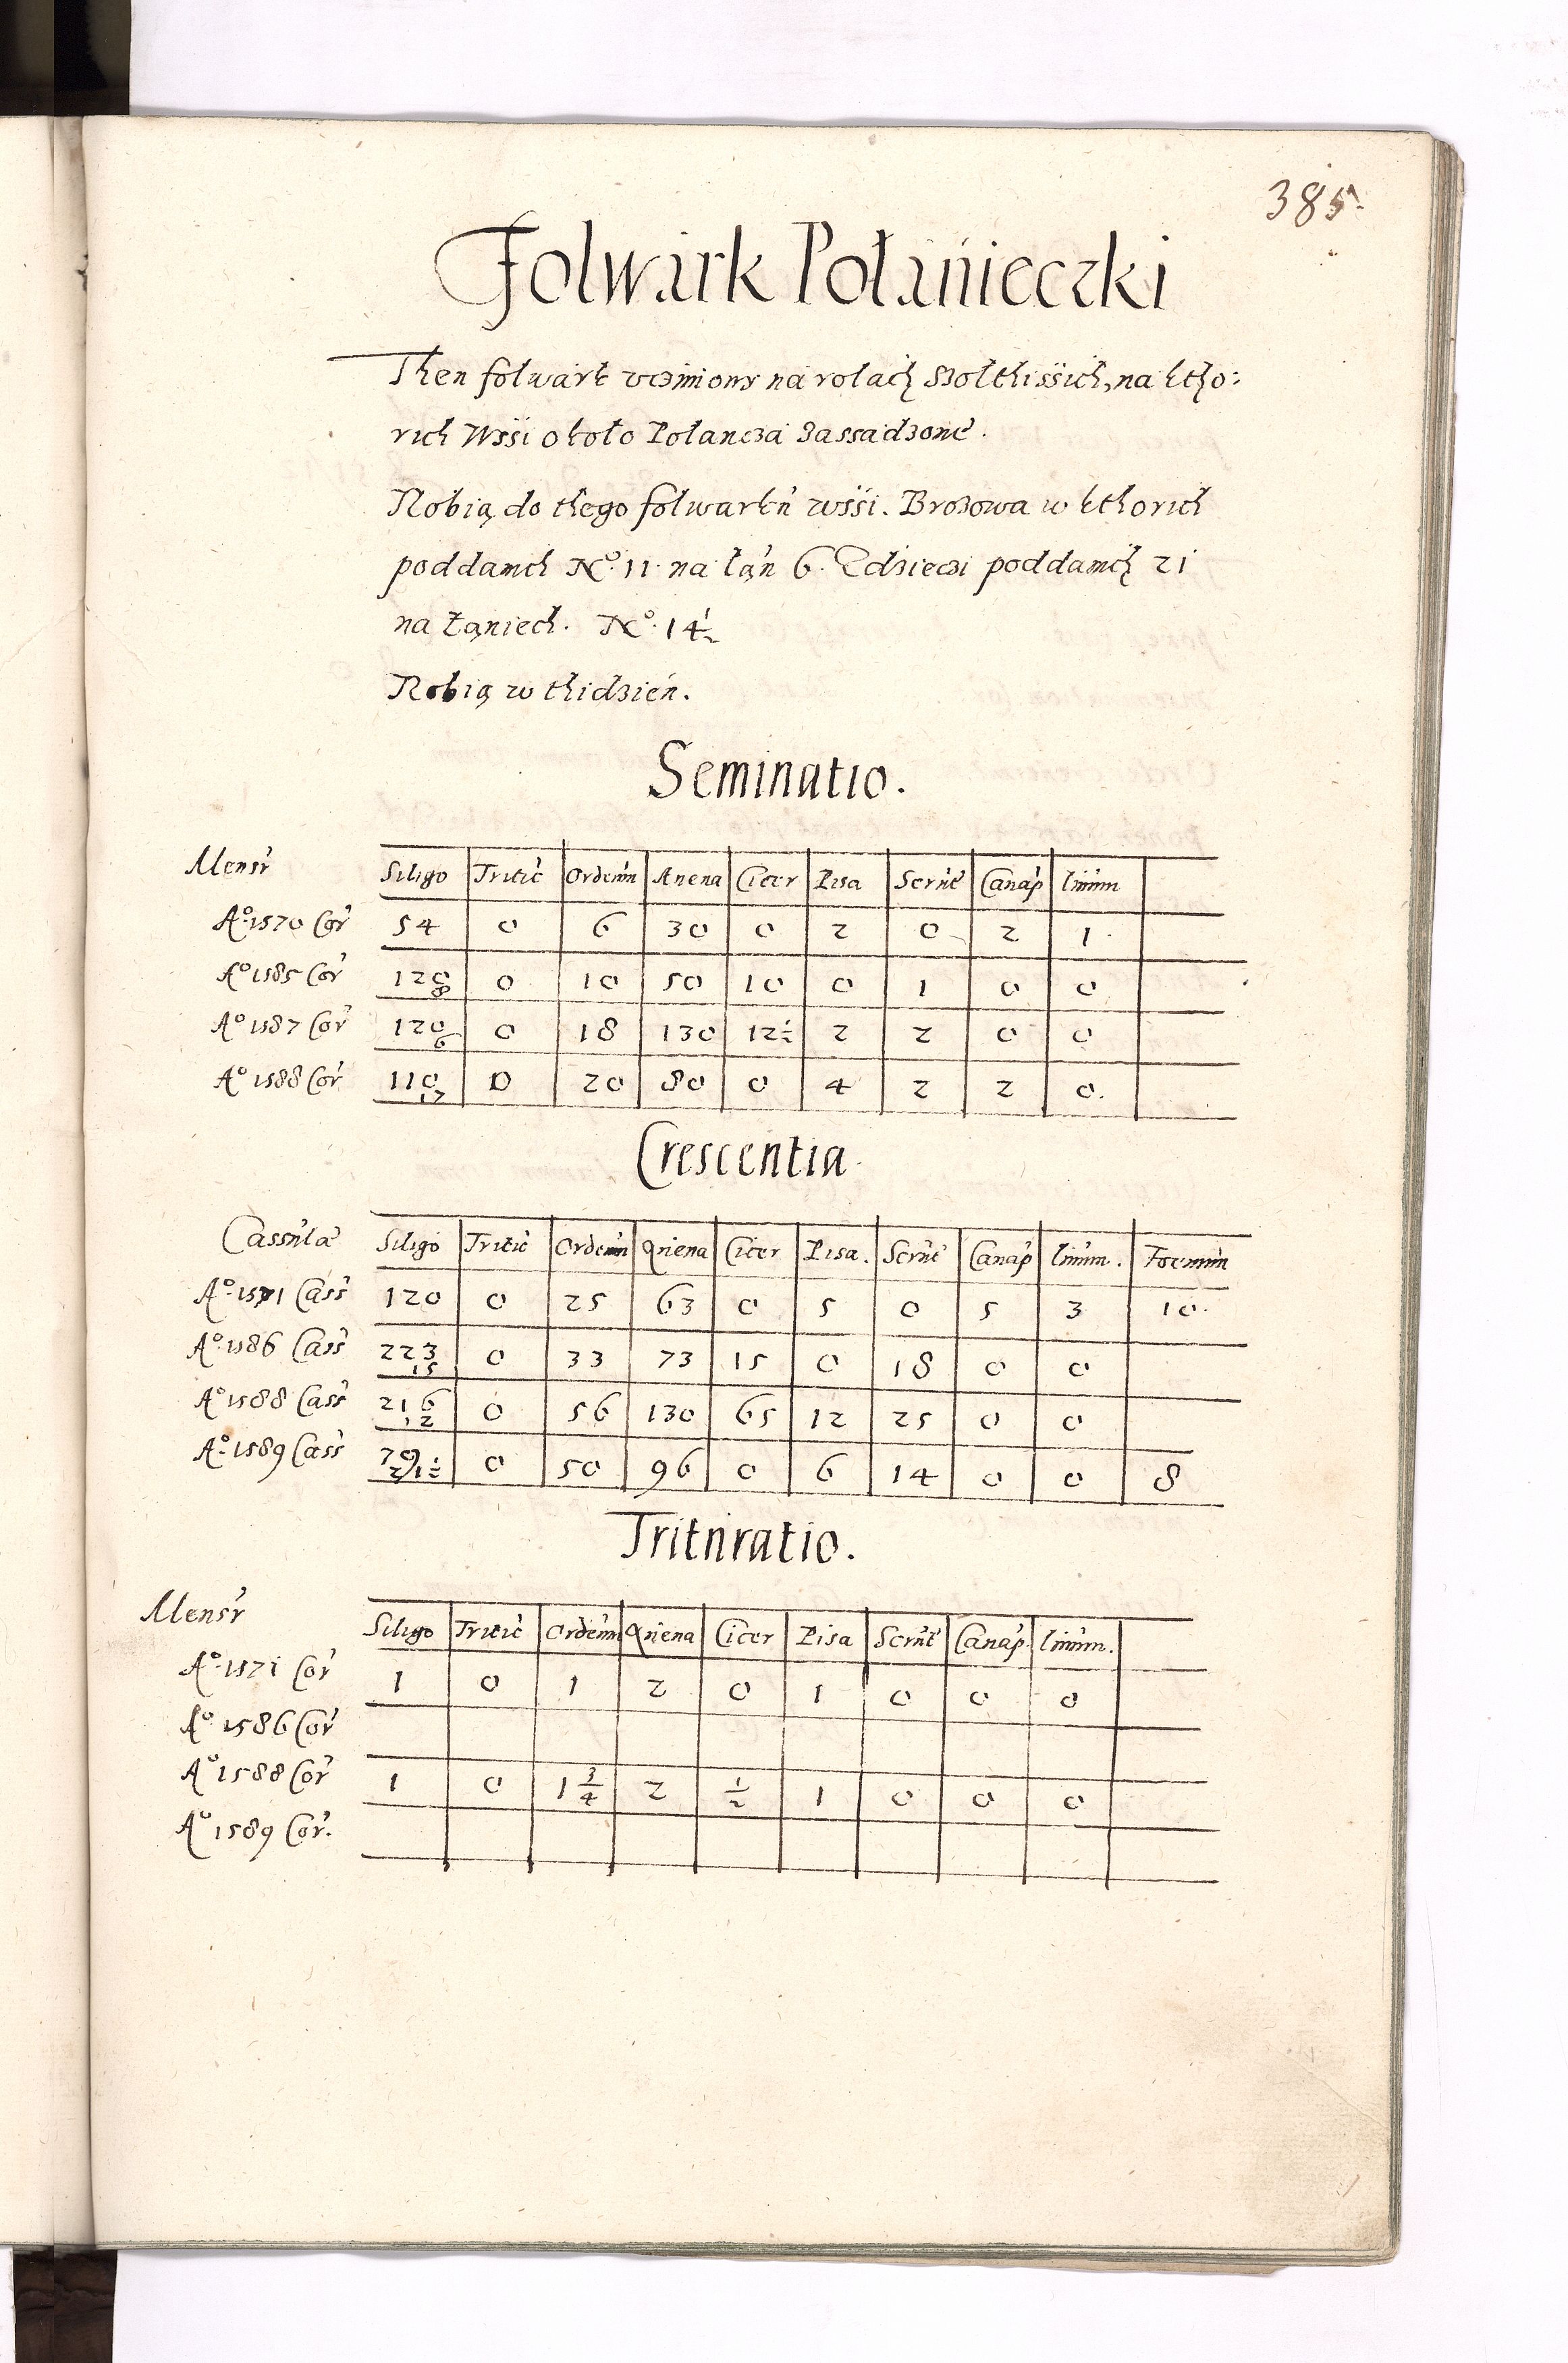 385.
Folwark Połanieczki
Then folwark vcziniony na rolach Szolthissich, na ktho:
rich Wssi około Polancza zassadzone.
Robią do thego folwarku wssi. Brozowa w kthorich
poddanich No. 11 na łan 6. Zdzieczi poddanich 21
na Łaniech. No. 14 1/2
Robią w thidzien.
Seminatio.
Mensr Siligo Tritic Ordeum Auena Cicer Pisa Serut Canap linum
Ao. 1570 Cor 54 0 6 30 0 2 0 2 1
Ao 1585 Cor 120 8 0 10 50 10 0 1 0 0
Ao 1587 Cor 120 6 0 18 130 12 1/2 2 2 0 0
Ao 1588 Cor 110 17 0 20 80 0 4 2 2 0.
Crescentia
Cassulae Siligo Tritic Ordeum Auena Cicer Pisa. Serut Canap linum. Foenum
Ao. 1571 Cass 120 0 25 63 0 5 0 5 3 10.
Ao. 1586 Cass 223 15 0 33 73 15 0 18 0 0
Ao 1588 Cass 216 12 0 56 130 65 12 25 0 0
Ao. 1589 Cass 0 50 96 0 6 14 0 0 8
Trituratio.
Mensr Siligo Tritic Ordeum Auena Cicer Pisa Serut Canap. linum.
Ao. 1571 Cor 1 0 1 2 0 1 0 0 0
Ao. 1586 Cor
Ao 1588 Cor 1 0 1 3/4 2 1/2 1 0 0 0
Ao 1589 Cor.